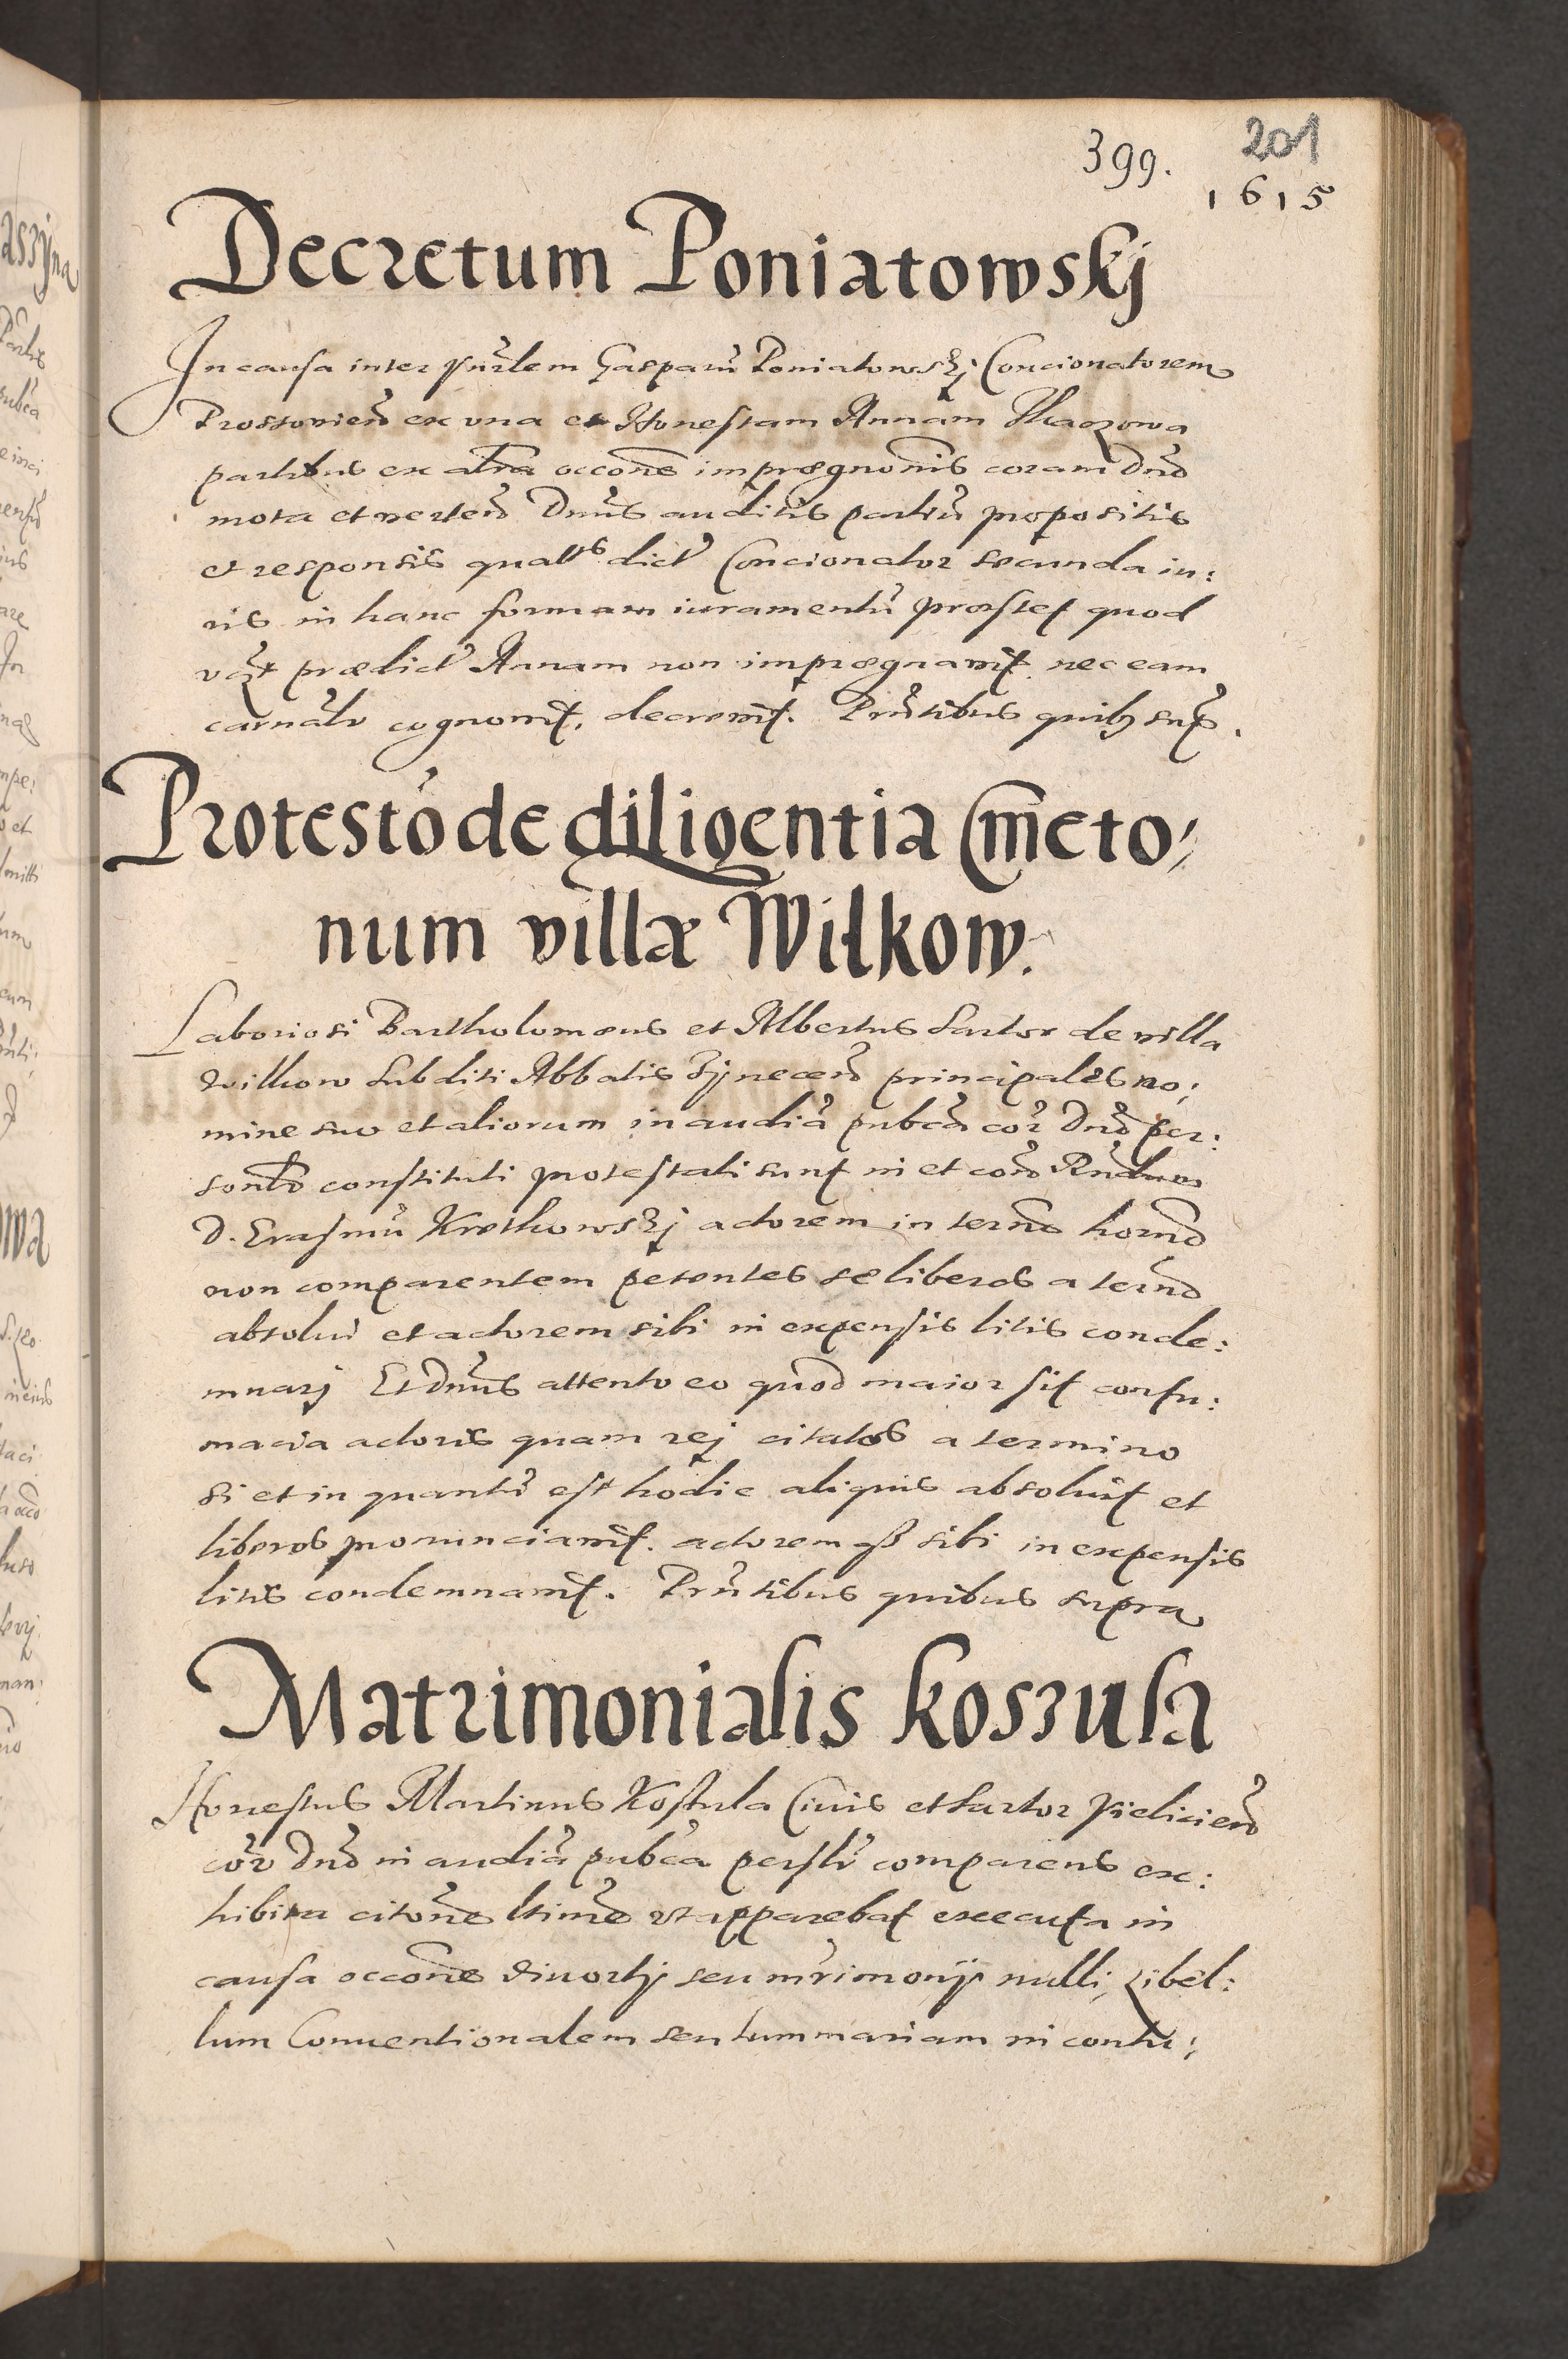 399. 201
1615
Decretum Poniatowskj
In causa inter Vnrlem Gasparũ Poniatowskj Concionatorem
Prossouien ex vna et Honestam Annam Tkaczowa
partibus ex altra occone imprægnonis coram Dno
mota et verten Dnus auditis partiũ propositis
et responsis quatus dict Concionator secunda iu:
ris in hanc formam iuramentũ præstet quod
prædict Annam non imprægnavit nec eam
carnalr cognovit, decrevit. Pñtibus quibz supr.
Protesto de diligentia Cmeto:
num villæ Wilkow.
Laboriosi Bartholomæus et Albertus Sartor de villa
Wilkow subditi Abbatis Tynecen principales no:
mine suo et aliorum in audia pubca cor Dno per:
sonlr constituti protestati sunt in et con Rndum
D. Erasmũ Kretkowskj actorem in termo horno
non comparentem petentes se liberos a termo
absolui et actorem sibi in expensis litis conde:
mnarj Et Dnus attento eo quod maior sit contu:
macia actoris quam rej citatos a termino
si et in quantũ est hodie aliquis absoluit et
liberos pronunciavit. actorem sibi in expensis
litis condemnavit. Pñtibus quibus supra
Matrimonialis Koszula
Honestus Martinus Kossula Ciuis et Sartor Vielicien
cor Dno in audia pubca perslr comparens ex:
hibita citone ltime vt apparebat executa in
causa occone diuortij seu mrimonij nulli, Libel:
lum Conuentionalem seu summariam in contu: